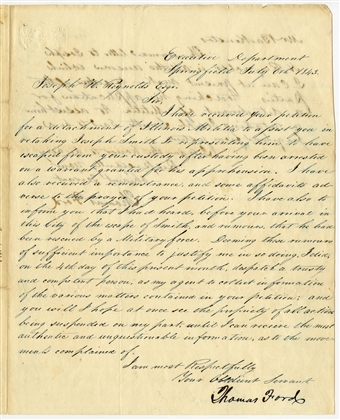 Executive Department
Springfield July 6th 1843.
Joseph H. Reynolds Esqr.
Sir,
I have received your petition
for a detachment of Illinois Militia to assist you in
retaking Joseph Smith: representing him to have
escaped from your custody after having been arrested
on a warrant granted for his apprehension. I have
also received a remonstrance and some affidavits ad-
verse to the prayer of your petition. I have also to
inform you that I had heard, before your arrival in
this city of the escape of Smith, and rumours, that he had
been rescued by a Military force. Deeming these rumours
of sufficient importance to justify me in so doing, I did,
on the 4th day of this present month, despatch a trusty
and competent person, as my agent to collect information
of the various matters contained in your petition; and
you will I hope at once see the propriety of all action
being suspended on my part, until I can receive the most
authentic and unquestionable information, as to the move-
ments complained of.
I am most Respectfully
Your Obedient Servant
Thomas Ford